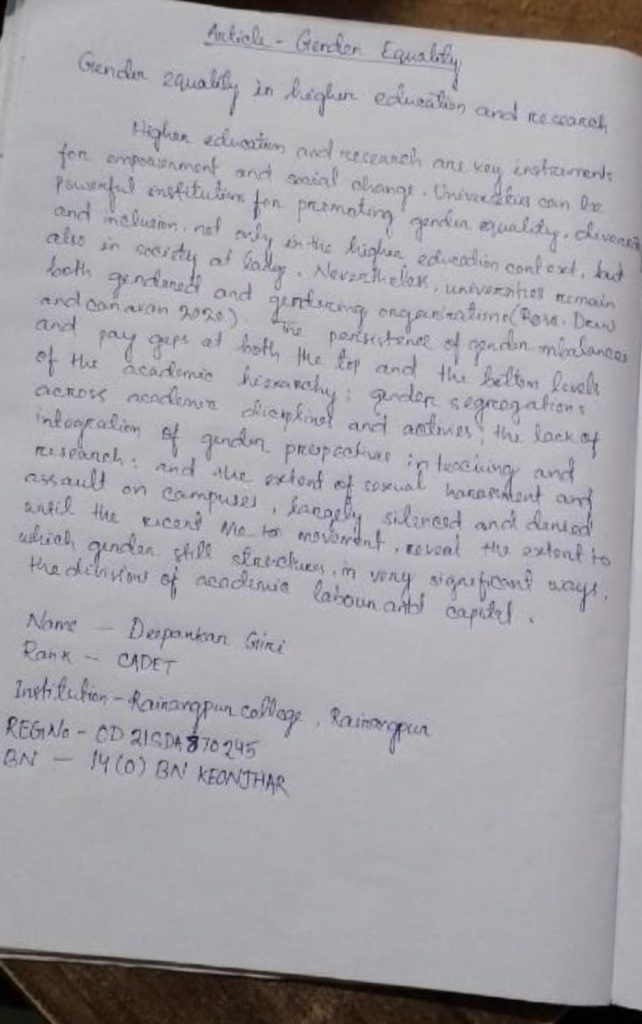 Article - Gender Equality
Gender equality in higher education and research
Higher education and research are key instruments
for empowerment and social change. Universities can be
powerful institution for promoting gender equality, diversity
and inclusion, not only in the higher education context, but
also in society at large. Nevertheless, universities remain
both gendered and gendering organizations (Rosa, Drew
and canavan 2020). The persistence of gender imbalances
and pay gaps at both the top and the bottom levels
of the academic hierarchy; gender segregations
across academic disciplines and activies; the lack of
integration of gender prespectives in teaching and
research; and the extent of sexual harassment and
assault on campuses, largely silenced and denied
until the recent Me-too movement, reveal the extent to
which gender still structures, in very significant ways,
the division of academic labour and capital.
Name - Deepankar Giri
Rank - CADET
Institution - Rairangpur college, Rairangpur
REGNo - OD 21SDA870245
BN - 14(O) BN KEONJHAR